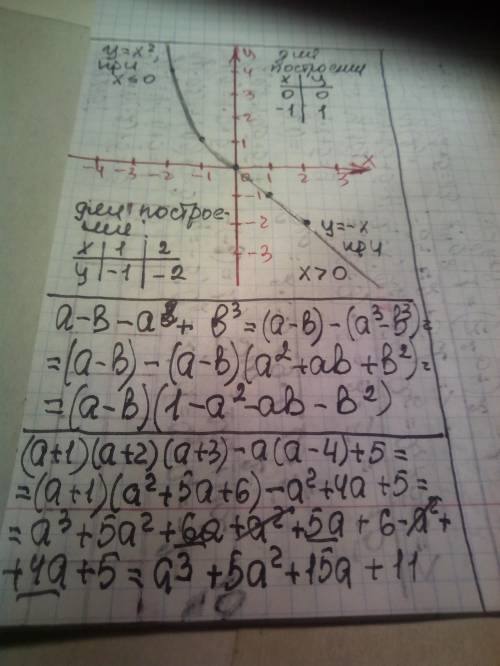 y=x²,
при
x≤0
y
для
построения
x y
0 0
-1 1
4
3
2
1
-4 -3 -2 -1 0 1 2 3 x
-1
-2
-3
y=-x
при
x>0
для построе-
ния:
x 1 2
y -1 -2
a-b-a³+b³=(a-b)-(a³-b³)=
=(a-b)-(a-b)(a²+ab+b²)=
=(a-b)(1-a²-ab-b²)
(a+1)(a+2)(a+3)-a(a-4)+5=
=(a+1)(a²+5a+6)-a²+4a+5=
=a³+5a²+6a+a²+5a+6-a²+
+4a+5=a³+5a²+15a+11